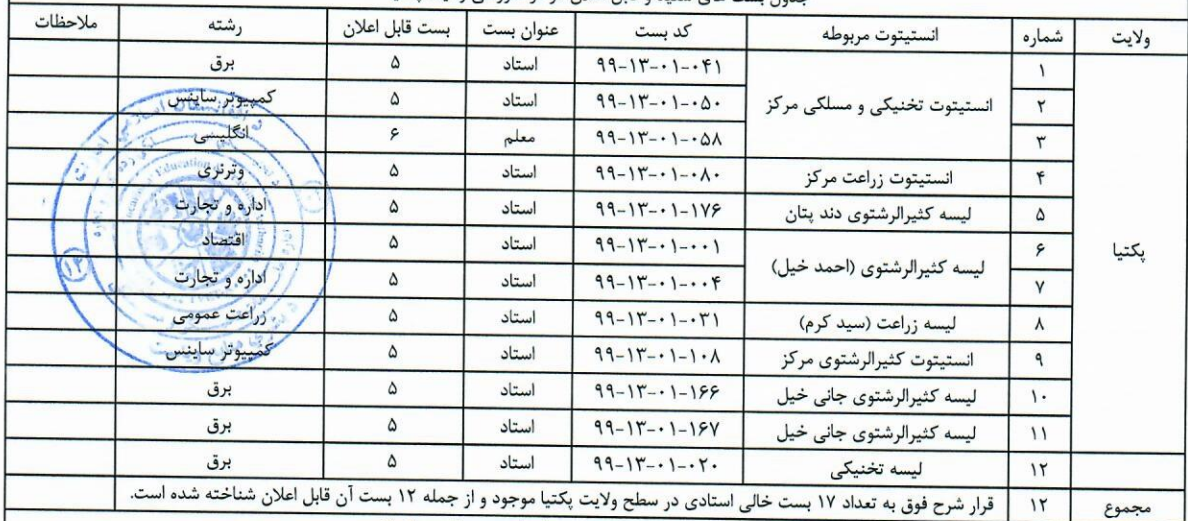 ولایت	شماره	انستیتوت مربوطه	کد بست	عنوان بست	بست قابل اعلان	رشته	ملاحظات
پکتیا	۱	انستیتوت تخنیکی و مسلکی مرکز	۹۹-۱۳-۰۱-۰۴۱	استاد	۵	برق
۲	۹۹-۱۳-۰۱-۰۵۰	استاد	۵	کمپیوتر ساینس
۳	۹۹-۱۳-۰۱-۰۵۸	معلم	۶	انگلیسی
۴	انستیتوت زراعت مرکز	۹۹-۱۳-۰۱-۰۸۰	استاد	۵	وترنری
۵	لیسه کثیرالرشتوی دند پتان	۹۹-۱۳-۰۱-۱۷۶	استاد	۵	اداره و تجارت
۶	لیسه کثیرالرشتوی (احمد خیل)	۹۹-۱۳-۰۱-۰۰۱	استاد	۵	اقتصاد
۷	۹۹-۱۳-۰۱-۰۰۴	استاد	۵	اداره و تجارت
۸	لیسه زراعت (سید کرم)	۹۹-۱۳-۰۱-۰۳۱	استاد	۵	زراعت عمومی
۹	انستیتوت کثیرالرشتوی مرکز	۹۹-۱۳-۰۱-۱۰۸	استاد	۵	کمپیوتر ساینس
۱۰	لیسه کثیرالرشتوی جانی خیل	۹۹-۱۳-۰۱-۱۶۶	استاد	۵	برق
۱۱	لیسه کثیرالرشتوی جانی خیل	۹۹-۱۳-۰۱-۱۶۷	استاد	۵	برق
۱۲	لیسه تخنیکی	۹۹-۱۳-۰۱-۰۲۰	استاد	۵	برق
مجموع	۱۲	قرار شرح فوق به تعداد ۱۷ بست خالی استادی در سطح ولایت پکتیا موجود و از جمله ۱۲ بست آن قابل اعلان شناخته شده است.
۱۳